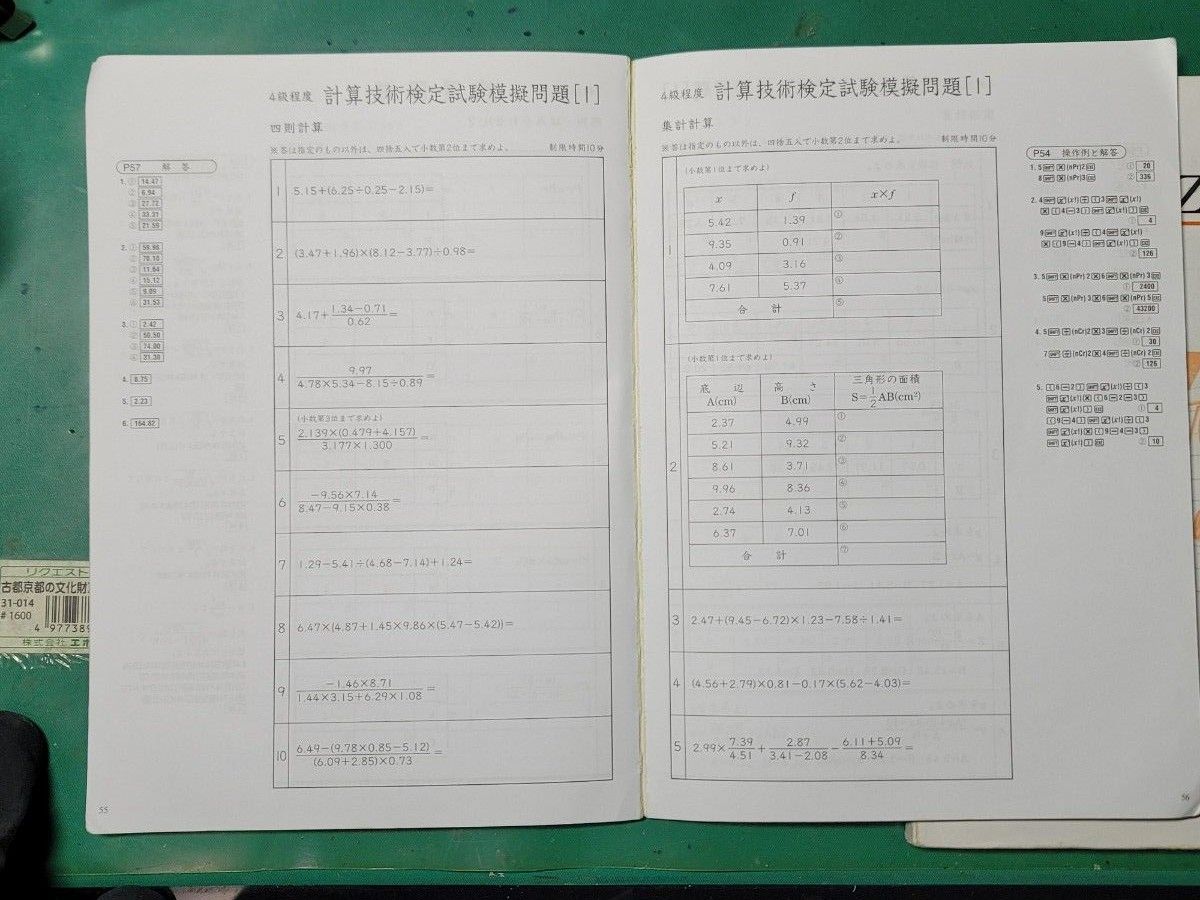 4級程度 計算技術検定試験模擬問題[1]
四則計算
※答は指定のもの以外は、四捨五入で小数第2位まで求めよ。 制限時間10分
1 5.15+(6.25÷0.25−2.15)=
2 (3.47+1.96)×(8.12−3.77)÷0.98=
3 4.17+ 1.34−0.71 / 0.62 =
4 9.97 / 4.78×5.34−8.15÷0.89 =
(小数第3位まで求めよ)
5 2.139×(0.479+4.157) / 3.177×1.300 =
6 −9.56×7.14 / 8.47−9.15×0.38 =
7 1.29−5.41÷(4.68−7.14)+1.24=
8 6.47×(4.87+1.45×9.86×(5.47−5.42))=
9 −1.46×8.71 / 1.44×3.15+6.29×1.08 =
10 6.49−(9.78×0.85−5.12) / (6.09+2.85)×0.73 =
P57 解答
1. ① 14.47
② 6.94
③ 27.72
④ 33.31
⑤ 21.59
2. ① 59.98
② 70.10
③ 11.64
④ 15.12
⑤ 9.09
⑥ 31.53
3. ① 2.42
② 50.50
③ 74.00
④ 31.30
4. 8.75
5. 2.23
6. 164.82
55
4級程度 計算技術検定試験模擬問題[1]
集計計算
※答は指定のもの以外は、四捨五入で小数第2位まで求めよ。 制限時間10分
1 (小数第1位まで求めよ)
x f x×f
5.42 1.39 ①
9.35 0.91 ②
4.09 3.16 ③
7.61 5.37 ④
合計 ⑤
2 (小数第1位まで求めよ)
底辺 A(cm) 高さ B(cm) 三角形の面積 S=1/2AB(cm²)
2.37 4.99 ①
5.21 9.32 ②
8.61 3.71 ③
9.96 8.36 ④
2.74 4.13 ⑤
6.37 7.01 ⑥
合計 ⑦
3 2.47+(9.45−6.72)×1.23−7.58÷1.41=
4 (4.56+2.79)×0.81−0.17×(5.62−4.03)=
5 2.99× 7.39 / 4.51 + 2.87 / 3.41−2.08 − 6.11+5.09 / 8.34 =
P54 操作例と解答
① 20
② 336
① 4
② 126
① 2400
② 43200
① 30
② 126
① 4
② 10
56
リクエスト
古都京都の文化財
31-014
#1600
4 97738
株式会社 エポ